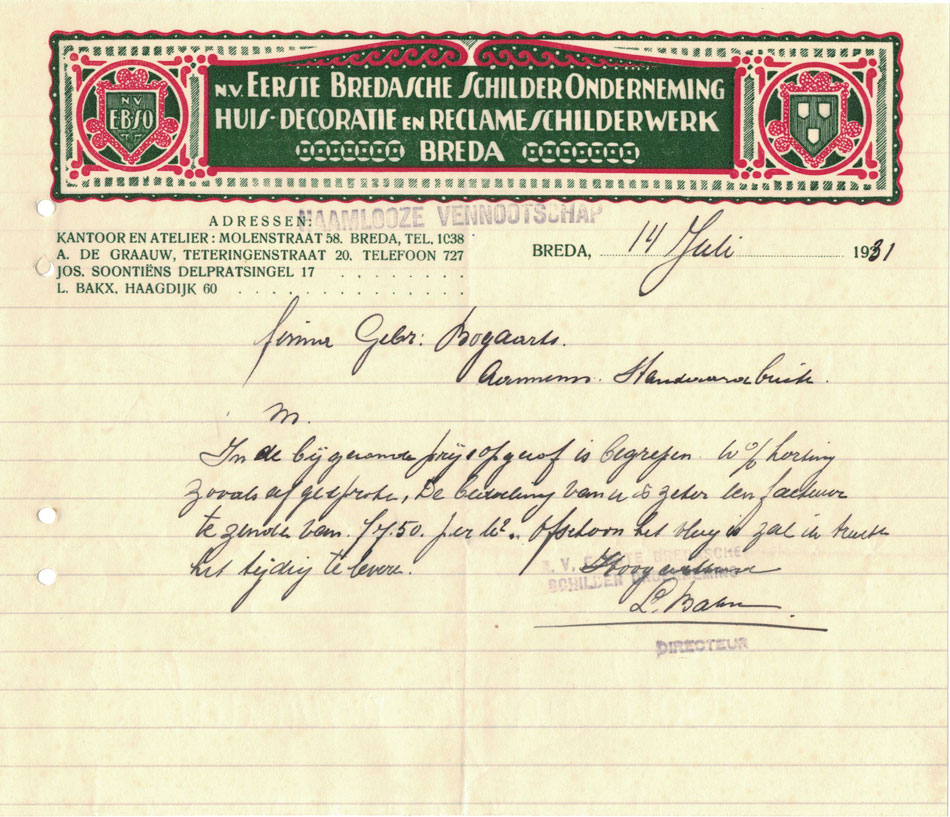 N.V. EERSTE BREDASCHE SCHILDER ONDERNEMING
HUIS-DECORATIE EN RECLAMESCHILDERWERK
BREDA
N.V.
E.B.S.O
NAAMLOOZE VENNOOTSCHAP
ADRESSEN:
KANTOOR EN ATELIER: MOLENSTRAAT 58. BREDA, TEL. 1038
A. DE GRAAUW, TETERINGENSTRAAT 20. TELEFOON 727
JOS. SOONTIËNS DELPRATSINGEL 17
L. BAKX. HAAGDIJK 60
BREDA, 14 Juli 1931
Firma Gebr: Bogaarts.
Aannemers. Standaardbuiten.
M.
In de bijgaande prijsopgaaf is begrepen 10 % korting
zooals afgesproken, De bedoeling van u is zeker een factuur
te zenden van f 7.50. per M². Ofschoon het vlug is zal ik trachten
het tijdig te leveren.
Hoogachtend
N. V. EERSTE BREDASCHE
SCHILDER ONDERNEMING
L. Bakx
DIRECTEUR